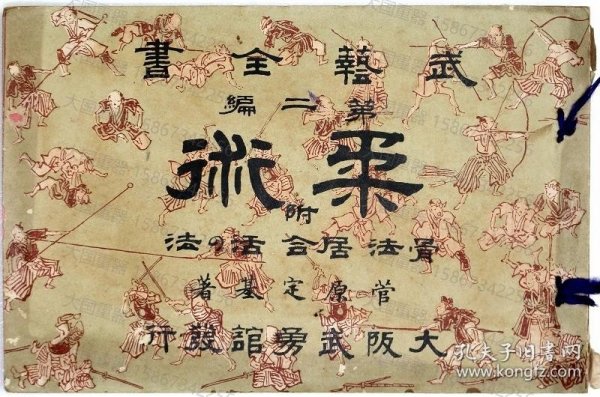 武藝全書
第二編
柔術
附
骨法居合活の法
菅原定基著
大阪武勇館發行
孔夫子旧书网
kongfz.com